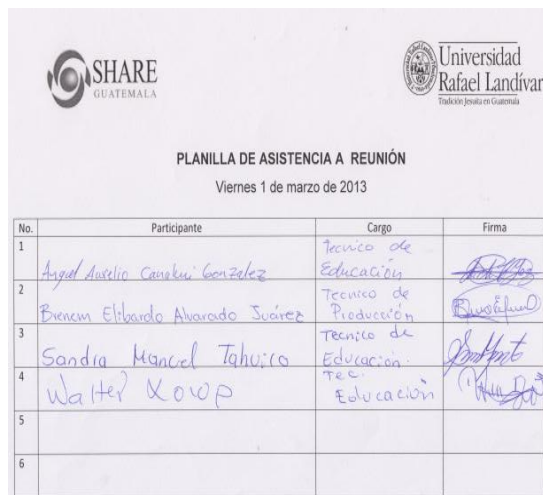 SHARE
GUATEMALA
Universidad
Rafael Landívar
Tradición Jesuita en Guatemala
PLANILLA DE ASISTENCIA A REUNIÓN
Viernes 1 de marzo de 2013
No. Participante Cargo Firma
1 Angel Aurelio González Tecnico de Educación
2 Elibardo Alvarado Juárez Tecnico de Producción
3 Sandra Manuel Tahuico Tecnico de Educación.
4 Walter Tec. Educación
5
6